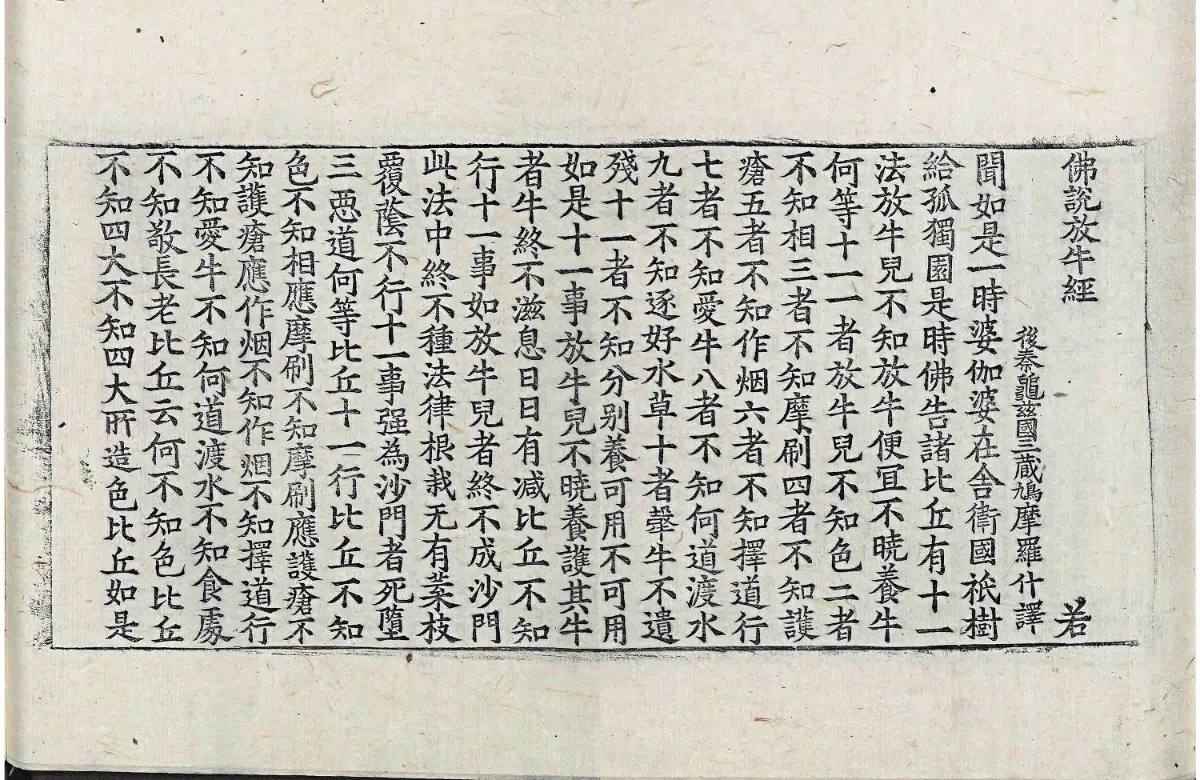 佛說放牛經 若
後秦龜茲國三藏鳩摩羅什譯
聞如是一時婆伽婆在舍衛國祇樹
給孤獨園是時佛告諸比丘有十一
法放牛兒不知放牛便宜不曉養牛
何等十一一者放牛兒不知色二者
不知相三者不知摩刷四者不知護
瘡五者不知作烟六者不知擇道行
七者不知愛牛八者不知何道渡水
九者不知逐好水草十者㲉牛不遺
殘十一者不知分別養可用不可用
如是十一事放牛兒不曉養護其牛
者牛終不滋息日日有減比丘不知
行十一事如放牛兒者終不成沙門
此法中終不種法律根栽无有葉枝
覆蔭不行十一事强為沙門者死墮
三惡道何等比丘十一行比丘不知
色不知相應摩刷不知摩刷應護瘡不
知護瘡應作烟不知作烟不知擇道行
不知愛牛不知何道渡水不知食處
不知敬長老比丘云何不知色比丘
不知四大不知四大所造色比丘如是